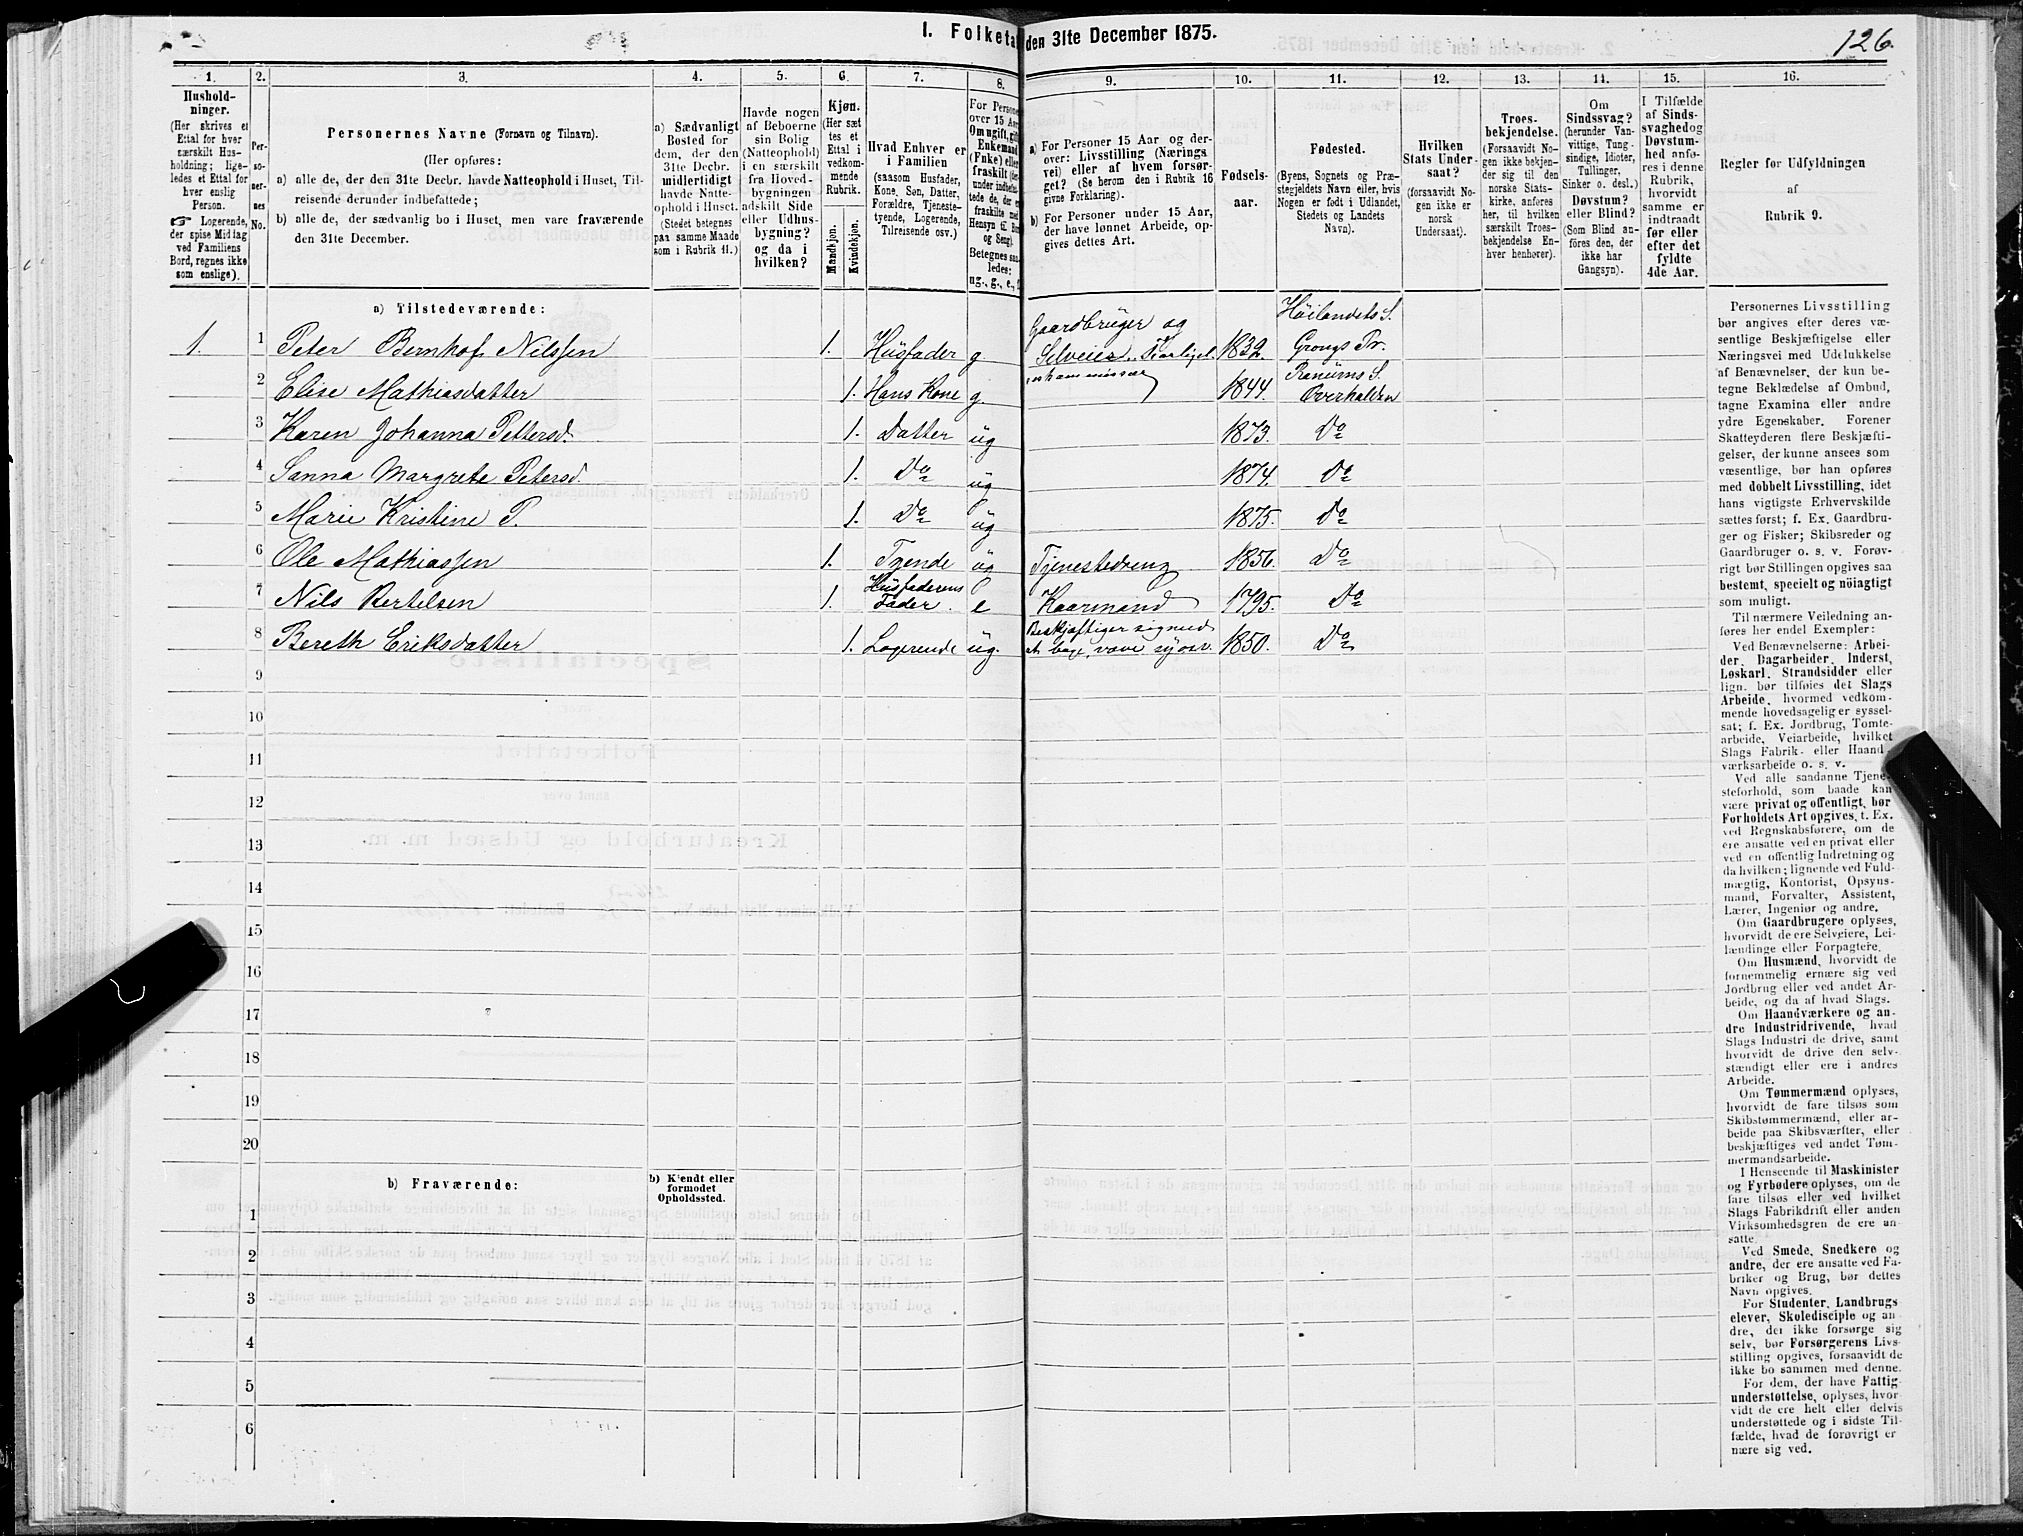 I. Folketa den 31te December 1875.
126.
1. 2. 3. 4. 5. 6. 7. 8. 9. 10. 11. 12. 13. 14. 15. 16.
Hushold-
ninger.
(Her skrives et
Ettal for hver
særskilt Hus-
holdning; lige-
ledes et Ettal for
hver enslig
Person.
☞ Logerende,
der spise Middag
ved Familiens
Bord, regnes ikke
som enslige).
Per-
so-
ner-
nes
No.
Personernes Navne (Fornavn og Tilnavn).
(Her opføres:
a) alle de, der den 31te Decbr. havde Natteophold i Huset, Til-
reisende derunder indbefattede;
b) alle de, der sædvanlig bo i Huset, men vare fraværende
den 31te December.
a) Sædvanligt
Bosted for
dem, der den
31te Decbr.
midlertidigt
havde Natte-
ophold i Huset.
(Stedet betegnes
paa samme Maade
som i Rubrik 11.)
Havde nogen
af Beboerne
sin Bolig
(Natteophold)
i en særskilt
fra Hoved-
bygningen
adskilt Side
eller Udhus-
bygning?
og da i
hvilken?
Kjøn.
(Her sæt
tes et
Ettal i
vedkom-
mende
Rubrik.
Mandkjøn.
Kvindekjøn.
Hvad Enhver er
i Familien
(saasom Husfader,
Kone, Søn, Datter,
Forældre, Tjeneste-
tyende, Logerende,
Tilreisende osv.)
For Persone
over 15 Aar
Om ugift, gift,
Enkemand
(Fnke) eller
fraskilt
under indbefat-
tede de, der er
fraskilte med
Hensyn til Bo
og Seng).
Betegnes saa-
ledes:
ug., g., e.,
a) For Personer 15 Aar og der-
over: Livsstilling (Nærings
vei) eller af hvem forsør-
get? (Se herom den i Rubrik 16
givne Forklaring).
b) For Personer under 15 Aar,
der have lønnet Arbeide, op-
gives dettes Art.
Fødsels-
aar.
Fødested.
(Byens, Sognets og Præ-
stegjeldets Navn eller, hvis
Nogen er født i Udlandet,
Stedets og Landets
Navn).
Hvilken
Stats Under-
saat?
(forsaavidt No-
gen ikke er
norsk
Undersaat).
Troes-
bekjendelse.
(Forsaavidt No-
gen ikke bekjen-
der sig til den
norske Stats-
kirke, anføres
her, til hvilken
særskilt Troes-
bekjendelse En-
hver henhører).
Om
Sindssvag?
(herunder Van-
vittige, Tung-
sindige, Idioter,
Sinker o. desl.)
Døvstum?
eller Blind?
(Som Blind an-
føres den, der
ikke har
Gangsyn).
I Tilfælde
af Sinds-
svaghed og
Døvstum-
hed anfø-
res i denne
Rubrik,
hvorvidt
samme er
indtraadt
før eller
efter det
fyldte
4de Aar.
Regler for Udfyldningen
af
Rubrik 9.
a) Tilstedeværende:
Høilandets S.
Gaardbruger og
1. 1 Peter Bernhof Nilssen 1. Husfader g. Selveier 1832. Grongs Pr.
Ranums S.
2 Elise Mathiasdatter 1. Hans Kone g. 1844. Overhalden
3 Karen Johanna Pettersd. 1. Datter ug 1873. Do
4 Sanna Margrete Petersd. 1. Do ug 1874. Do
5 Marie Kristine P. 1. Do ug 1875. Do
6 Ole Mathiassen 1. Tyende ug Tjenestedreng 1856. Do
Husfaderens
7 Nils Bertelsen 1. Fader. e Kaarmand 1795. Do
Beskjæftiger sig med
8 Bereth Eriksdatter 1. Logerende ug. væve sy osv. 1850. Do
9
10
11
12
13
14
15
16
17
18
19
20
b) Fraværende:
b) Kjendt eller
formodet
Opholdssted.
1
2
3
4
5
6
Personernes Livsstilling
bør angives efter deres væ-
sentlige Beskjæftigelse eller
Næringsvei med Udelukkelse
af Benævnelser, der kun be-
tegne Beklædelse af Ombud,
tagne Examina eller andre
ydre Egenskaber. Forener
Skatteyderen flere Beskjæfti-
gelser, der kunne ansees som
væsentlige, bør han opføres
med dobbelt Livsstilling, idet
hans vigtigste Erhvervskilde
sættes først; f. Ex. Gaardbru-
ger og Fisker; Skibsreder og
Gaardbruger o. s. v. Forøv-
rigt bør Stillingen opgives saa
bestemt, specielt og nöiagtigt
som muligt.
Til nærmere Veiledning an-
føres her endel Exempler:
Ved Benævnelserne: Arbei-
der, Dagarbeider, Inderst,
Løskarl, Strandsidder eller
lign. bør tilføies det Slags
Arbeide, hvormed vedkom-
mende hovedsagelig er syssel-
sat; f. Ex. Jordbrug, Tomte-
arbeide, Veiarbeide, hvilket
Slags Fabrik- eller Haand-
værksarbeide o. s. v.
Ved alle saadanne Tjene-
steforhold, som baade kan
være privat og offentligt, bør
Forholdets Art opgives, t. Ex.
ved Regnskabsførere, om de
ere ansatte ved en privat eller
ved en offentlig Indretning og
da hvilken; lignende ved Fuld-
mægtig, Kontorist, Opsyns-
mand, Forvalter, Assistent,
Lærer, Ingeniør og andre.
Om Gaardbrugere oplyses,
hvorvidt de ere Selveiere, Lei-
lændinge eller Forpagtere.
Om Husmænd, hvorvidt de
fornemmelig ernære sig ved
Jordbrug eller ved andet Ar-
beide, og da af hvad Slags.
Om Haandværkere og an-
dre Industridrivende, hvad
Slags Industri de drive, samt
hvorvidt de drive den selv-
stændigt eller ere i andres
Arbeide.
Om Tømmermænd oplyses,
hvorvidt de fare tilsøs som
Skibstømmermænd, eller ar-
beide paa Skibsværfter, eller
beskjæftiges ved andet Tøm-
mermandsarbeide.
I Henseende til Maskinister
og Fyrbødere oplyses, om de
fare tilsøs eller ved hvilket
Slags Fabrikdrift eller anden
Virksomhedsgren de ere an-
satte.
Ved Smede, Snedkere og
andre, der ere ansatte ved Fa-
briker og Brug, bør dettes
Navn opgives.
For Studenter, Landbrugs
elever, Skoledisciple og an-
dre, der ikke forsørge sig
selv, bør Forsørgerens Livs-
stilling opgives, forsaavidt de
ikke bo sammen med denne.
For dem, der have Fattig-
understøttelse, oplyses, hvor-
vidt de ere helt eller delvis
understøttede og i sidste Til-
fælde, hvad de forøvrigt er
nære sig ved.